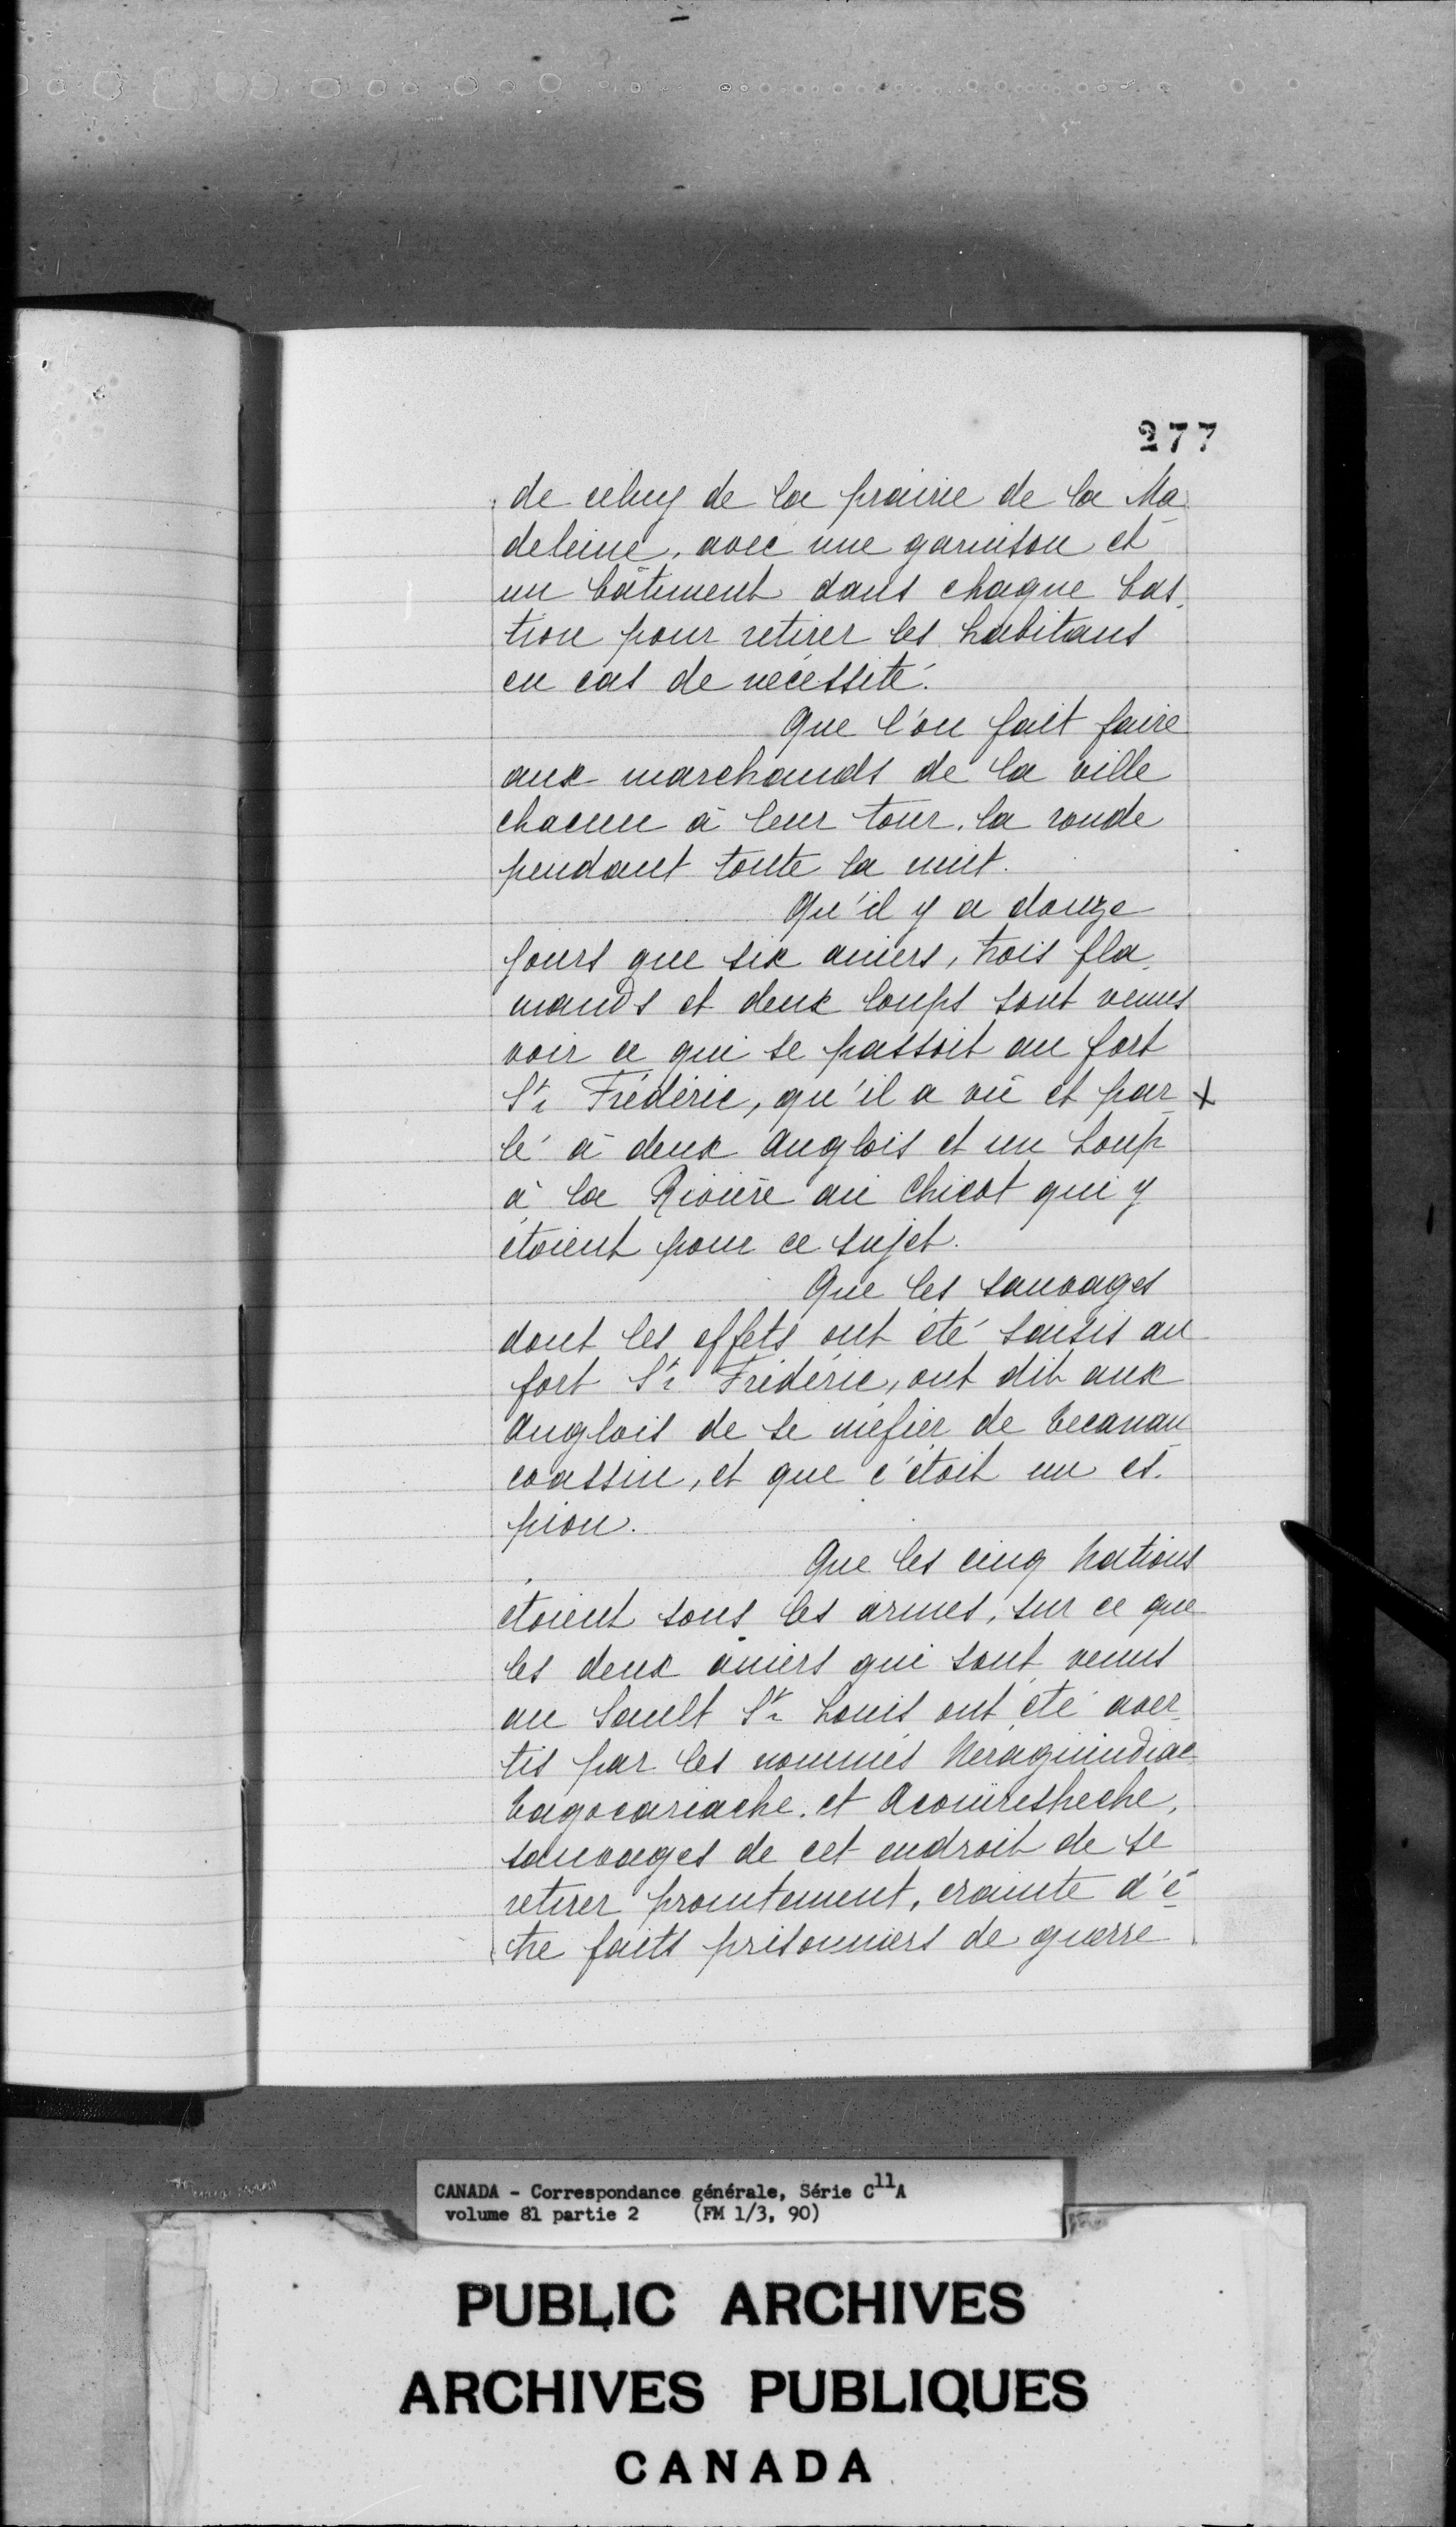 277
de celuy de la prairie de la Ma
deleine, avec une garnison et
un bâtiment dans chaque bas
tion pour retirer les habitans
en cas de nécessité.
Que l'on fait faire
aux marchands de la ville
chacun à leur tour, la ronde
pendant toute la nuit.
Qu'il y a douze
jours que six aniers, trois fla
mands et deux loups sont venus
voir ce qui se passoit au fort
St Frédéric, qu'il a vû et par x
lé à deux Anglois et un Loup
à la Rivière au Chicot qui y
étoient pour ce sujet.
Que les sauvages
dont les effets ont été saisis au
fort St Frédéric, ont dit aux
Anglois de se méfier de
coassin, et que c'étoit un es
pion.
Que les cinq Nations
étoient sous les armes, sur ce que
les deux aniers qui sont venus
au Sault St Louis ont été aver
tis par les nommés
et
sauvages de cet endroit de se
retirer promtement, crainte d'ê
tre faits prisonniers de guerre
CANADA - Correspondance générale, Série C11A
volume 81 partie 2 (FM 1/3, 90)
PUBLIC ARCHIVES
ARCHIVES PUBLIQUES
CANADA